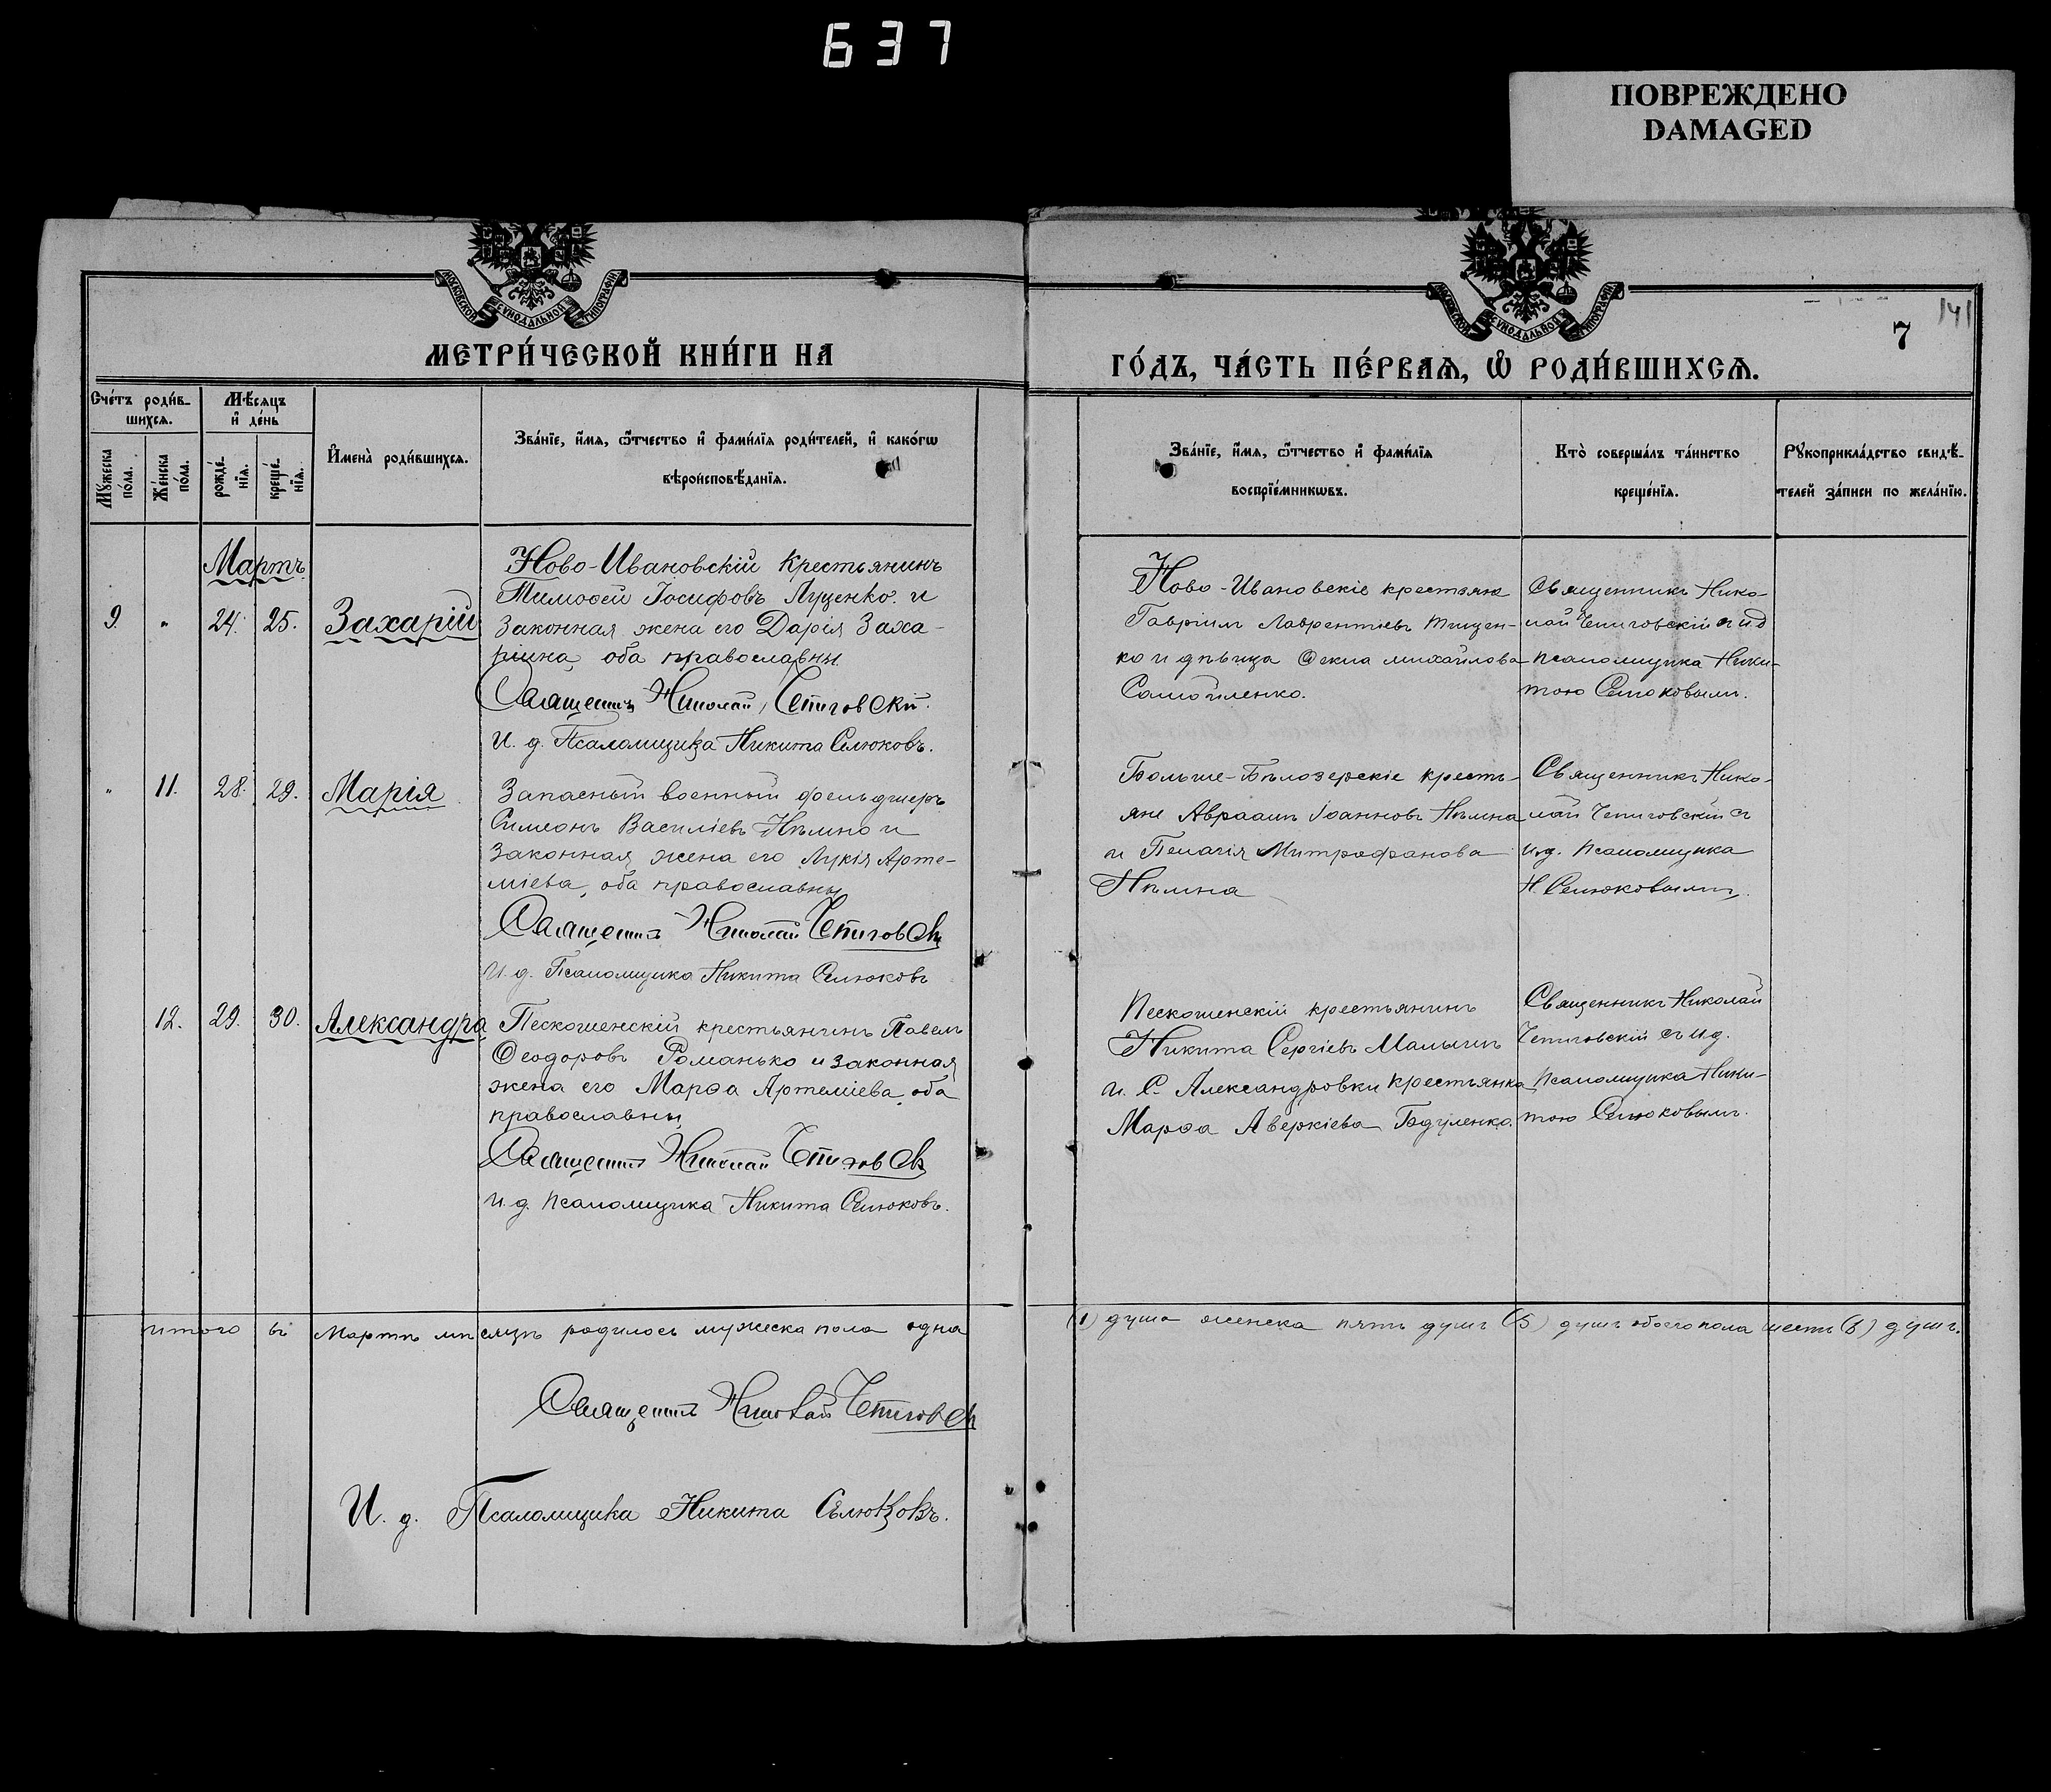 637
ПОВРЕЖДЕНО
DAMAGED
МОСКОВСКОЙ СѴНОДАЛЬНОЙ ТИПОГРАФІИ
МОСКОВСКОЙ СѴНОДАЛЬНОЙ ТИПОГРАФІИ
141
7
МЕТРИ́ЧЕСКОЙ КНИ́ГИ НА
ГО́ДЪ, ЧА́СТЬ ПЕ́РВАѦ, Ѿ РОДИ́ВШИХСѦ.
Сче́тъ роди́в-
шихсѧ.
Мѣ́сяцъ
и҆ де́нь
Мꙋ́жеска
по́ла.
Же́нска
по́ла.
рожде́-
нїѧ.
креще́-
нїѧ.
И҆мена̀ роди́вшихсѧ.
Зва́нїе, и҆́мѧ, ѻ҆́тчество и҆ фами́лїѧ роди́телей, и҆ како́гѡ
вѣроисповѣ́данїѧ.
Зва́нїе, и҆́мѧ, ѻ҆́тчество и҆ фами́лїѧ
воспрїе́мникѡвъ.
Кто̀ соверша́лъ та́инство
креще́нїѧ.
Рꙋкоприкла́дство свидѣ́-
телей за́писи по жела́нїю.
Мартъ
9. " 24. 25. Захарій
Ново-Ивановскій Крестьянинъ
Тимоѳей Іосифовъ Луценко и
Законная жена его Дарія Заха-
ріина, оба православны
Священникъ Николай Чепиговскій.
И. д. Псаломщика Никита Селюковъ.
Ново-Ивановскіе крестьяне
Гавріилъ Лаврентіевъ Тищен-
ко и дѣвица Ѳекла михайлова
Самойленко.
Священникъ Нико-
лай Чепиговскій с ид
псаломщика Ники-
тою Селюковымъ.
" 11. 28. 29. Марія
Запасный военный фельдшеръ
Симеонъ Василіевъ Нѣмно и
Законная жена его Лукія Арте-
міева, оба православны
Священникъ Николай Чепиговскій
И. д. Псаломщика Никита Селюковъ
Больше-Бѣлозерскіе кресть-
яне Авраамъ Іоанновъ Нѣмна
и Пелагія Митрофанова
Нѣмна
Священникъ Нико-
лай Чепиговскій съ
И.д. псаломщика
Н. Селюковымъ.
12. 29. 30. Александра
Пескошенскій крестьянинъ Павелъ
Ѳеодоровъ Романько и законная
жена его Марѳа Артеміева, оба
православны
Священникъ Николай Чепиговскій
И. д. псаломщика Никита Селюковъ.
Пескошенскій крестьянинъ
Никита Сергіевъ Малыгинъ
и С. Александровки крестьянка
Марѳа Аверкіева
Священникъ Николай
Чепиговскій съ И.д.
псаломщика Ники-
тою Селюковымъ.
итого въ Мартѣ мѣсяцѣ родилось мужеска пола одна (1) душа женска пять душъ (5) душъ обоего пола шесть (6) душъ.
Священникъ Николай Чепиговскій
И. д. Псаломщика Никита Селюковъ.